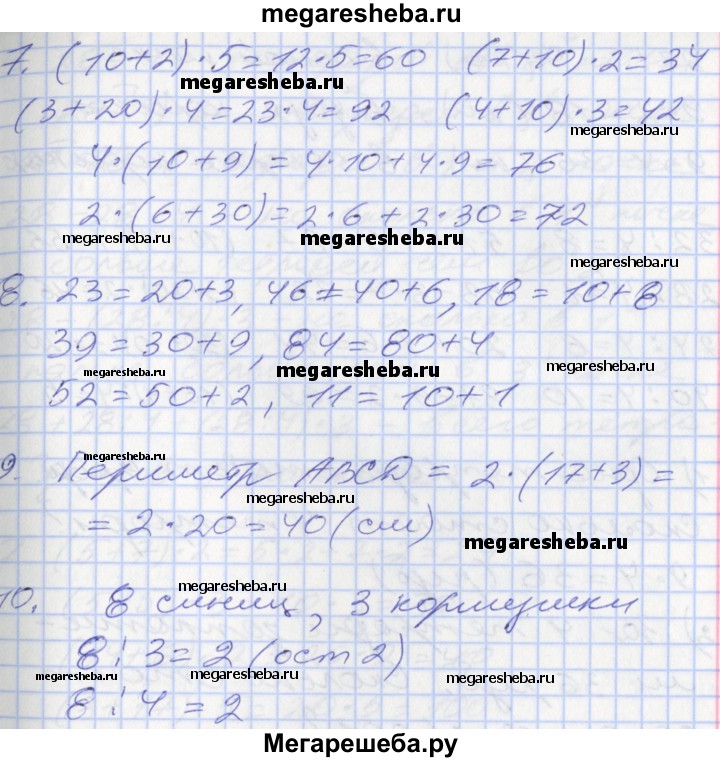 megaresheba.ru
7. (10+2)·5=12·5=60 (7+10)·2=34
megaresheba.ru
(3+20)·4=23·4=92 (4+10)·3=42
megaresheba.ru
4·(10+9)=4·10+4·9=76
2·(6+30)=2·6+2·30=72
megaresheba.ru megaresheba.ru megaresheba.ru
8. 23=20+3, 46=40+6, 18=10+8
39=30+9, 84=80+4
megaresheba.ru megaresheba.ru megaresheba.ru
52=50+2, 11=10+1
megaresheba.ru
9. Периметр ABCD = 2·(17+3)=
megaresheba.ru
=2·20=40(см)
megaresheba.ru
megaresheba.ru
10. 8 синиц, 3 кормушки
8:3=2(ост 2)
megaresheba.ru megaresheba.ru megaresheba.ru
8:4=2
Мегарешеба.ру